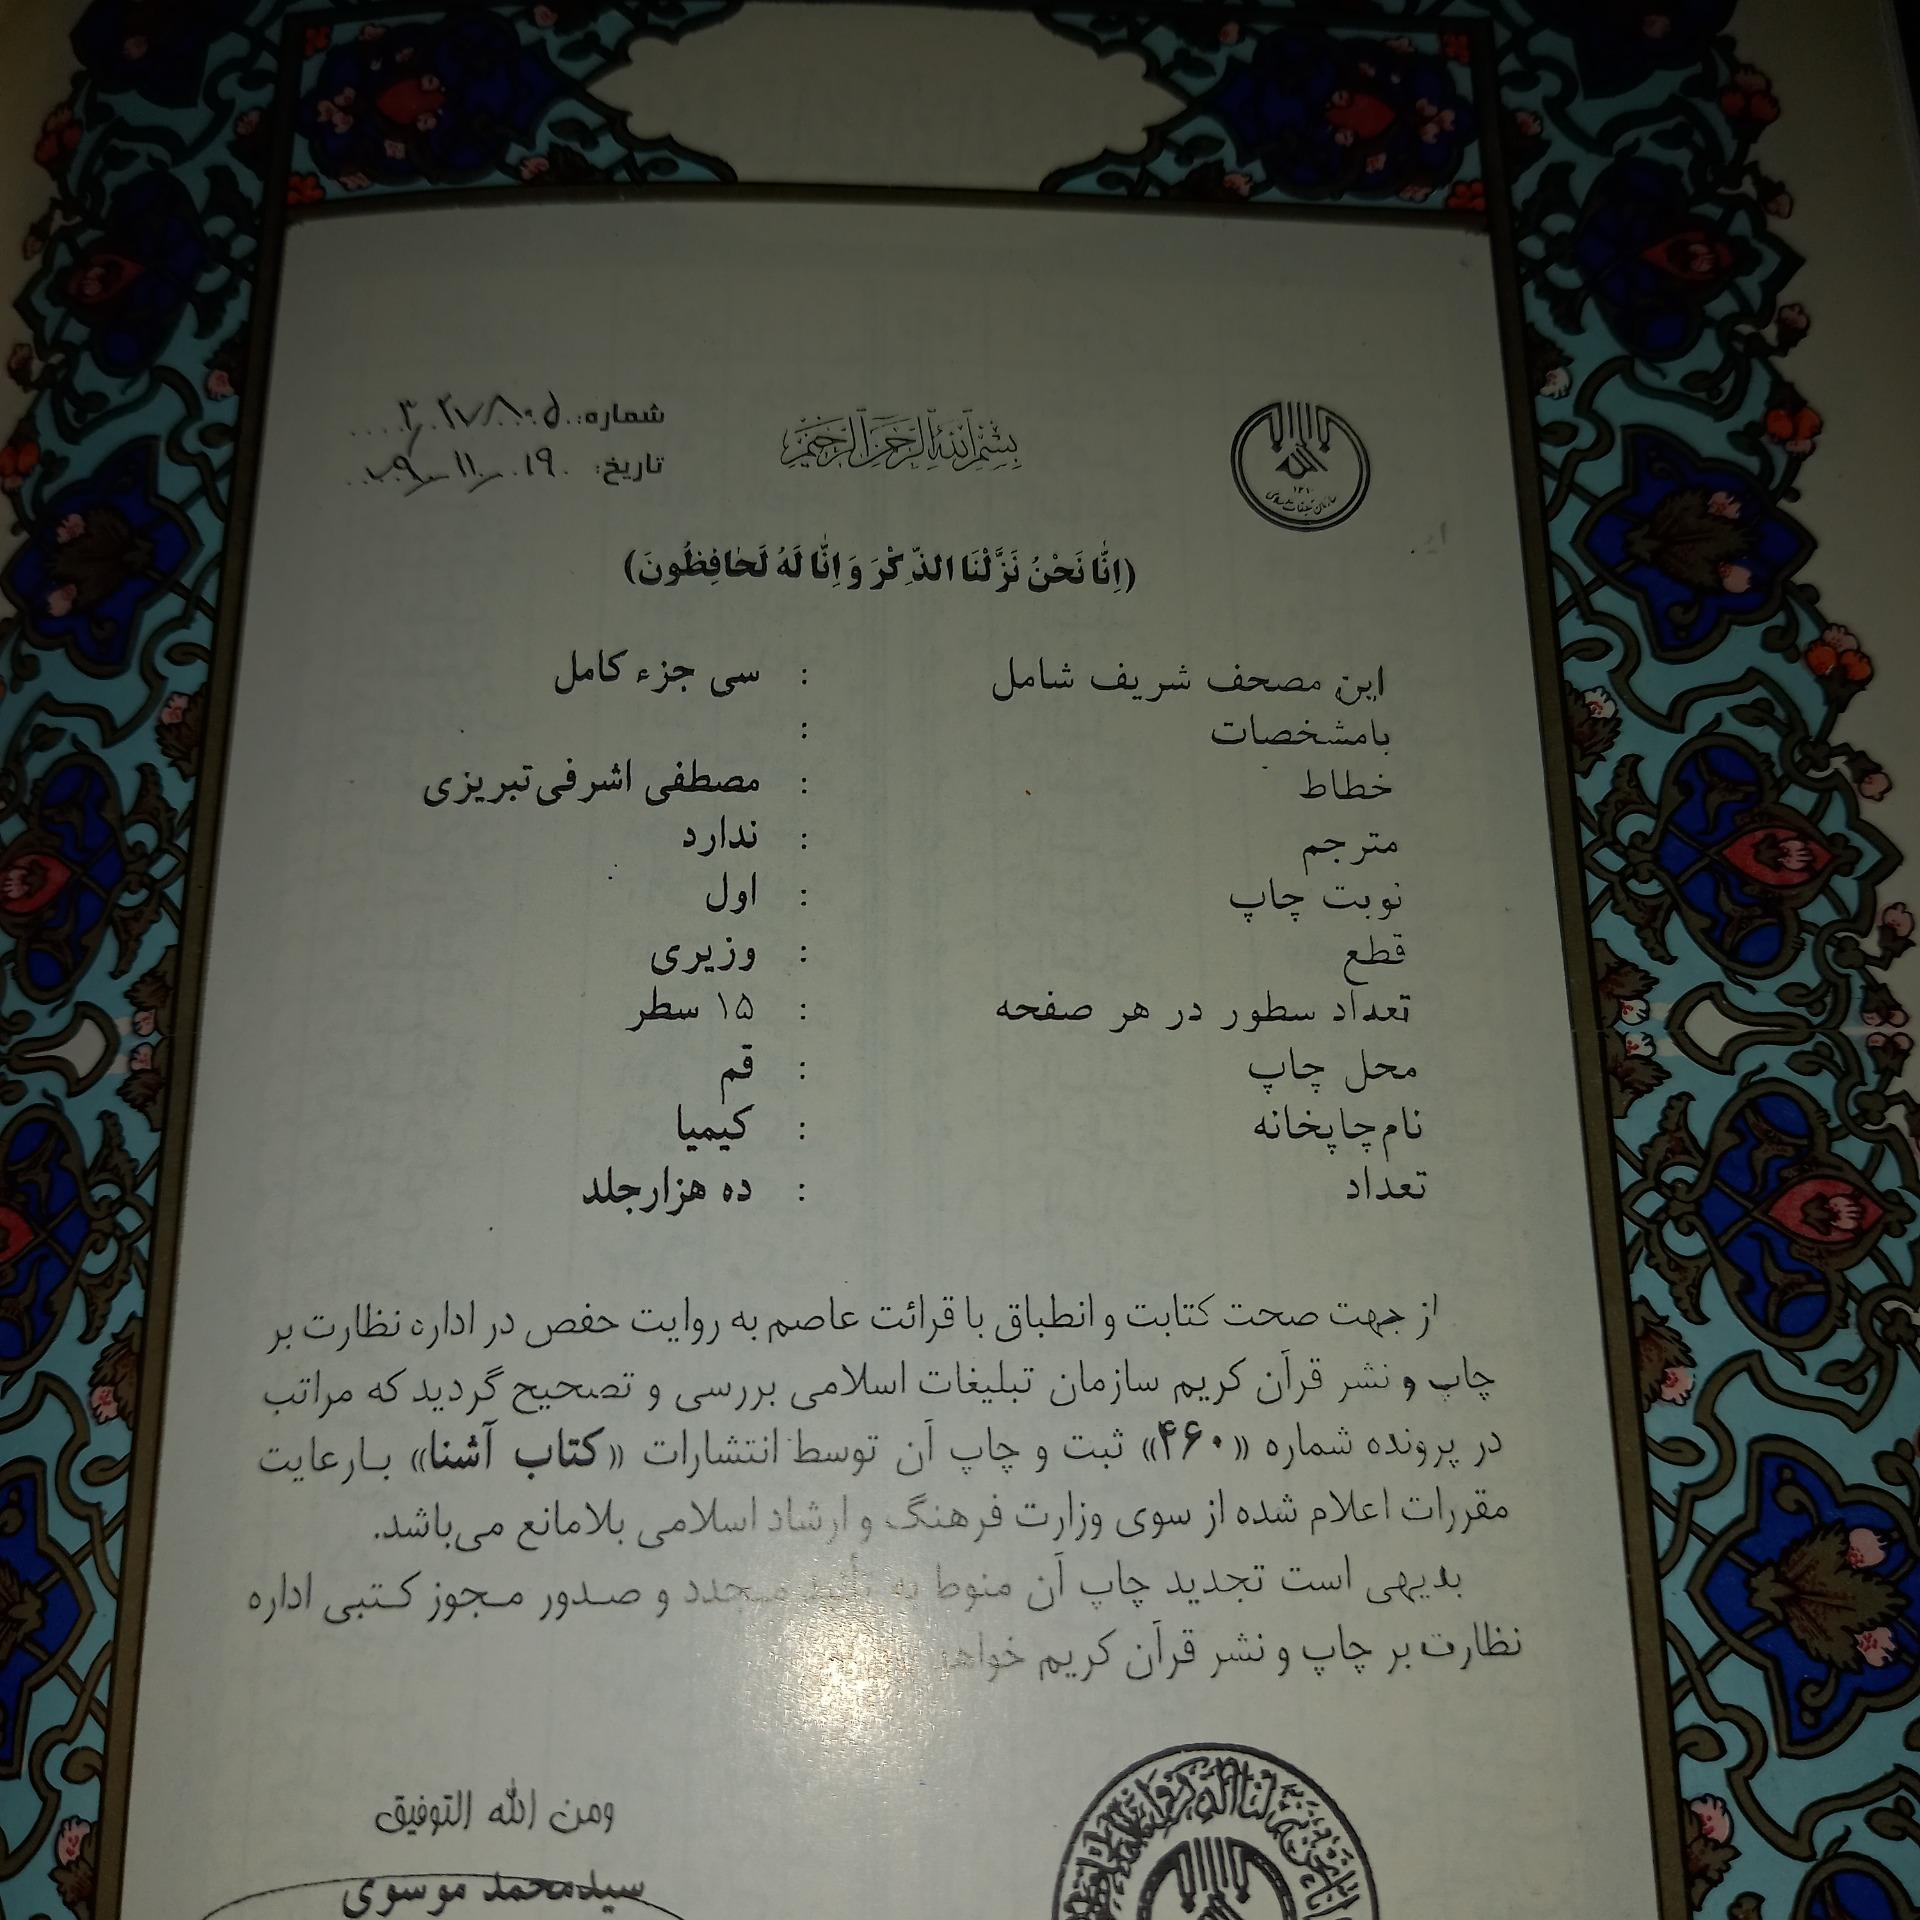 بسم الله الرحمن الرحیم
شماره:
تاریخ: ۱۹
۱۳۶۰
سازمان تبلیغات اسلامی
(اِنّٰا نَحْنُ نَزَّلْنَا الذِّكْرَ وَ اِنّٰا لَهُ لَحٰافِظُونَ)
این مصحف شریف شامل : سی جزء کامل
بامشخصات :
خطاط : مصطفی اشرفی تبریزی
مترجم : ندارد
نوبت چاپ : اول
قطع : وزیری
تعداد سطور در هر صفحه : ۱۵ سطر
محل چاپ : قم
نام چاپخانه : کیمیا
تعداد : ده هزار جلد
از جهت صحت کتابت و انطباق با قرائت عاصم به روایت حفص در اداره نظارت بر
چاپ و نشر قرآن کریم سازمان تبلیغات اسلامی بررسی و تصحیح گردید که مراتب
در پرونده شماره «۴۶۰» ثبت و چاپ آن توسط انتشارات «کتاب آشنا» بارعایت
مقررات اعلام شده از سوی وزارت فرهنگ و ارشاد اسلامی بلامانع می‌باشد.
بدیهی است تجدید چاپ آن منوط به تأئید مجدد و صدور مجوز کتبی اداره
نظارت بر چاپ و نشر قرآن کریم خواهد
ومن الله التوفیق
سیدمحمد موسوی